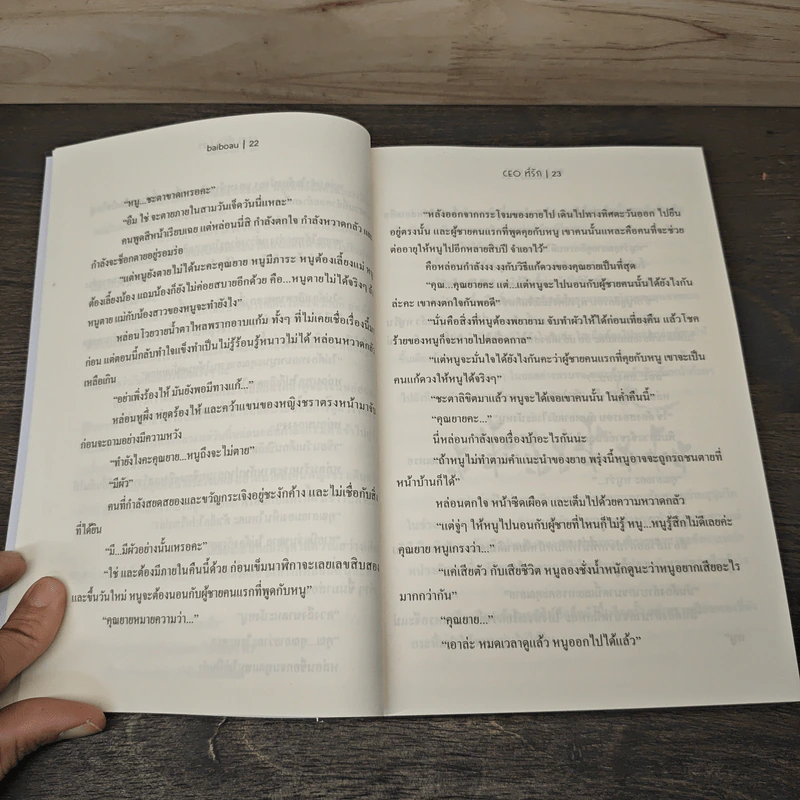 baiboau | 22
“หนู...ชะตาขาดเหรอคะ”
“อืม ใช่ จะตายภายในสามวันเจ็ดวันนี่แหละ”
คนพูดสีหน้าเรียบเฉย แต่หล่อนนี่สิ กำลังตกใจ กำลังหวาดกลัว
กำลังจะช็อกตายอยู่รอมร่อ
“แต่หนูยังตายไม่ได้นะคะคุณยาย หนูมีภาระ หนูต้องเลี้ยงแม่
ต้องเลี้ยงน้อง แถมน้องก็ยังไม่ค่อยสบายอีกด้วย คือ...หนูตายไม่ได้จริงๆ
หนูตาย แม่กับน้องสาวของหนูจะทำยังไง”
หล่อนโวยวายน้ำตาไหลพรากอาบแก้ม ทั้งๆ ที่ไม่เคยเชื่อเรื่องนี้
ก่อน แต่ตอนนี้กลับทำใจแข็งทำเป็นไม่รู้ร้อนรู้หนาวไม่ได้ หล่อนหวาดกลัว
เหลือเกิน
“อย่าเพิ่งร้องไห้ มันยังพอมีทางแก้...”
หล่อนหูผึ่ง หยุดร้องไห้ และคว้าแขนของหญิงชราตรงหน้ามา
ก่อนจะถามอย่างมีความหวัง
“ทำยังไงคะคุณยาย...หนูถึงจะ ไม่ตาย”
“มีผัว”
คนที่กำลังสยดสยองและขวัญกระเจิงอยู่ชะงักค้าง และไม่เชื่อกับสิ่ง
ที่ได้ยิน
“มี...มีผัวอย่างนั้นเหรอคะ”
“ใช่ และต้องมีภายในคืนนี้ด้วย ก่อนเข็มนาฬิกาจะเลยเลขสิบสอง
และขึ้นวันใหม่ หนูจะต้องนอนกับผู้ชายคนแรกที่พูดกับหนู”
“คุณยายหมายความว่า...”
CEO ที่รัก | 23
“หลังออกจากกระโจมของยายไป เดินไปทางทิศตะวันออก ไปยืน
อยู่ตรงนั้น และผู้ชายคนแรกที่พูดคุยกับหนู เขาคนนั้นแหละคือคนที่จะช่วย
ต่ออายุให้หนูไปอีกหลายสิบปี จำเอาไว้”
คือหล่อนกำลังงง งงกับวิธีแก้ดวงของคุณยายเป็นที่สุด
“คุณ...คุณยายคะ แต่...แต่หนูจะไปนอนกับผู้ชายคนนั้นได้ยังไงกัน
ล่ะคะ เขาคงตกใจกันพอดี”
“นั่นคือสิ่งที่หนูต้องพยายาม จับทำผัวให้ได้ก่อนเที่ยงคืน แล้วโชค
ร้ายของหนูก็จะหายไปตลอดกาล”
“แต่หนูจะมั่นใจได้ยังไงกันคะว่าผู้ชายคนแรกที่คุยกับหนู เขาจะเป็น
คนแก้ดวงให้หนูได้จริงๆ”
“ชะตาลิขิตมาแล้ว หนูจะได้เจอเขาคนนั้น ในค่ำคืนนี้”
“คุณยายคะ...”
นี่หล่อนกำลังเจอเรื่องบ้าอะไรกันนะ
“ถ้าหนูไม่ทำตามคำแนะนำของยาย พรุ่งนี้หนูอาจจะถูกรถชนตายที่
หน้าบ้านก็ได้”
หล่อนตกใจ หน้าซีดเผือด และเต็มไปด้วยความหวาดกลัว
“แต่จู่ๆ ให้หนูไปนอนกับผู้ชายที่ไหนก็ไม่รู้ หนู...หนูรู้สึกไม่ดีเลยค่ะ
คุณยาย หนูเกรงว่า...”
“แค่เสียตัว กับเสียชีวิต หนูลองชั่งน้ำหนักดูนะว่าหนูอยากเสียอะไร
มากกว่ากัน”
“คุณยาย...”
“เอาล่ะ หมดเวลาดูแล้ว หนูออกไปได้แล้ว”